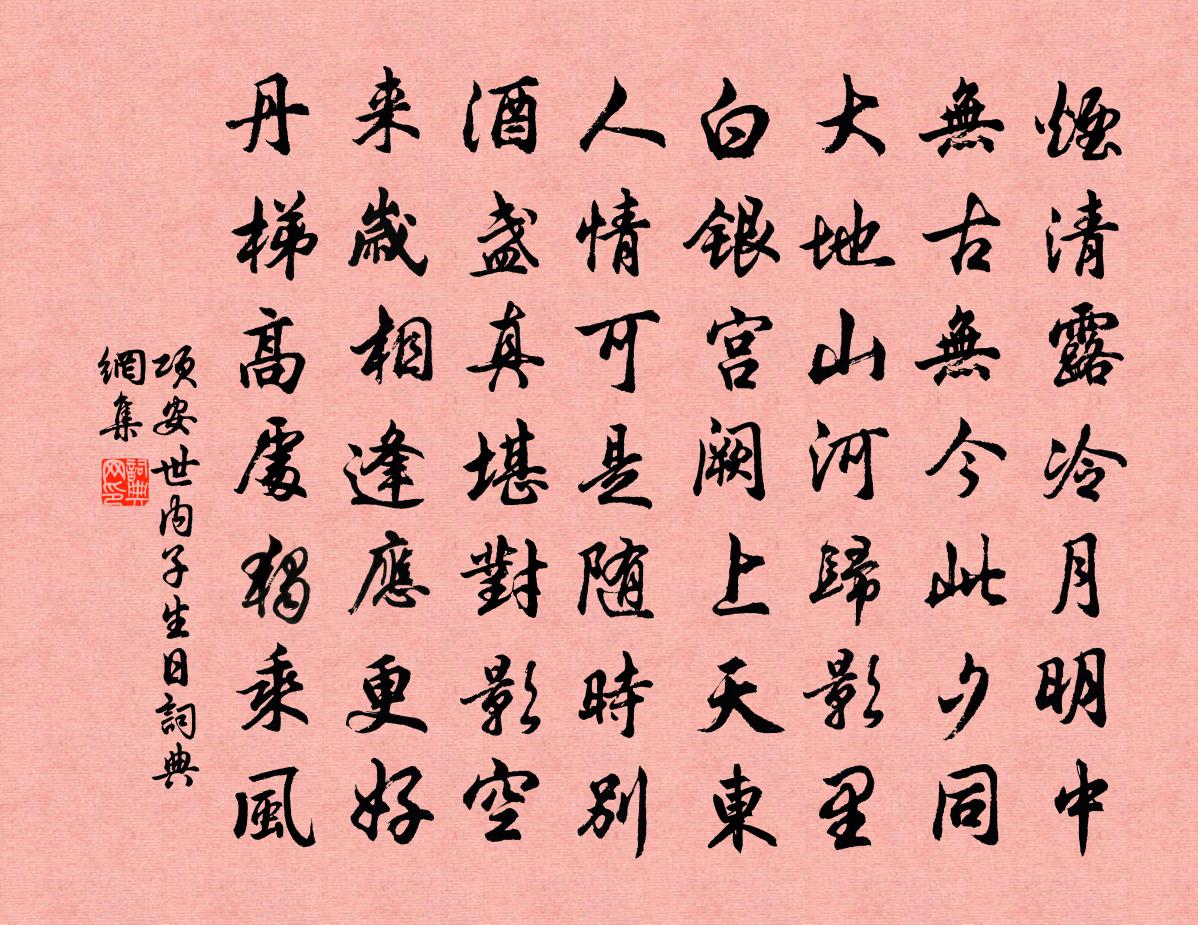 煙清露冷月明中
無古無今此夕同
大地山河歸影里
白銀宮闕上天東
人情可是随時別
酒盞真堪對影空
来歲相逢應更好
丹梯高處獨乘風
項安世內子生日詞典
網集
詞典
网印